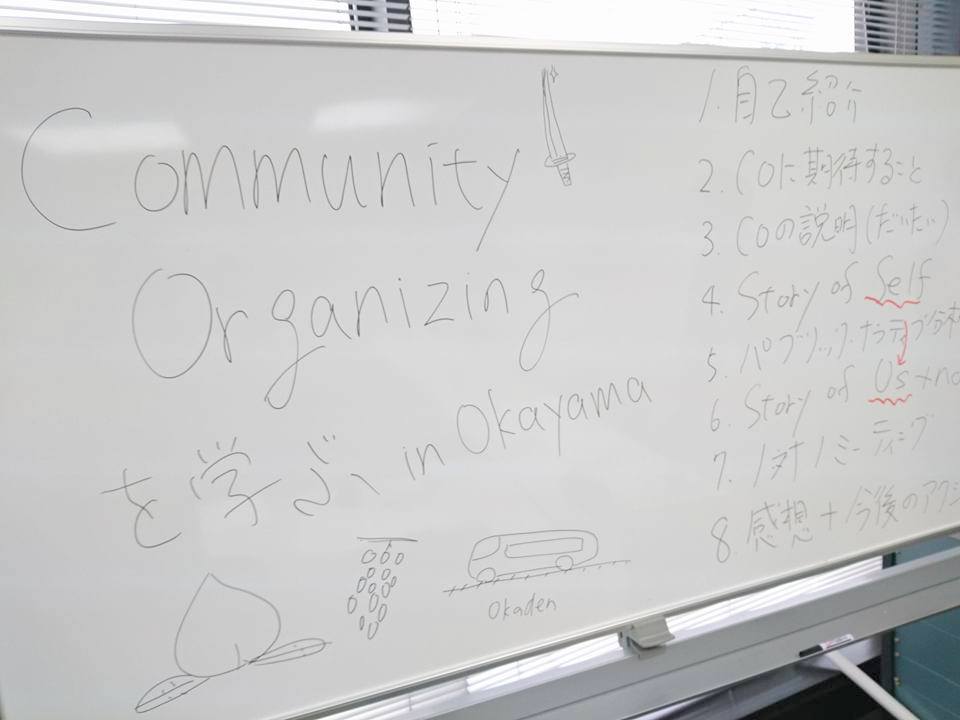 Community
Organizing
を学ぶ in Okayama
Okaden
1. 自己紹介
2. COに期待すること
3. COの説明(だいたい)
4. Story of Self
5. パブリック・ナラティブ
6. Story of Us + no
7. 1対1ミーティング
8. 感想 + 今後のアク